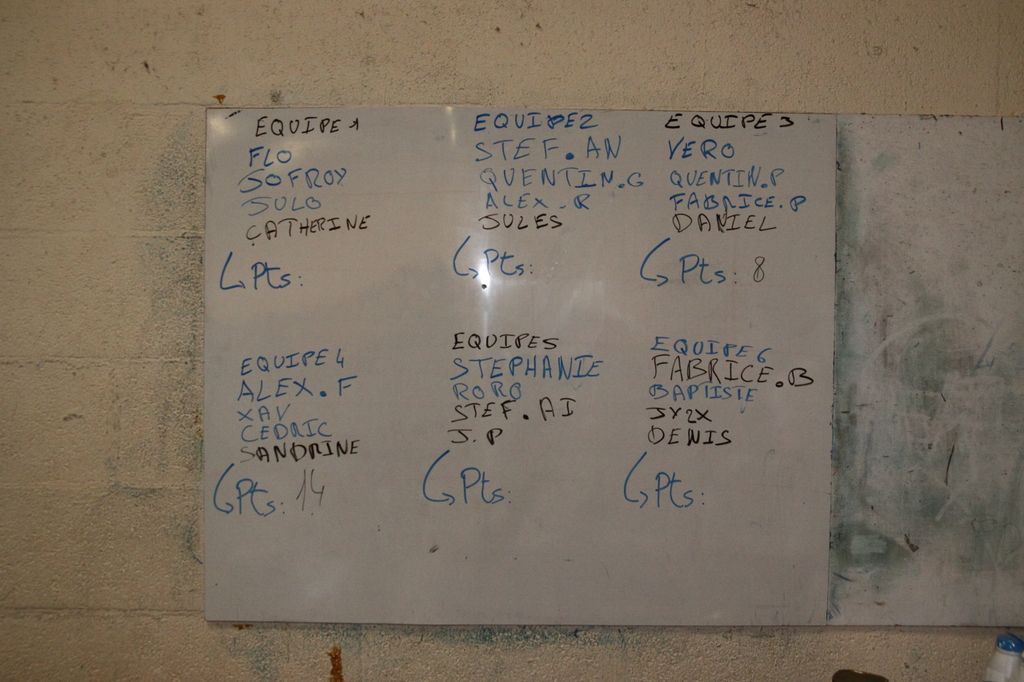 EQUIPE 1
FLO
JOFROY
JULO
CATHERINE
Pts:
EQUIPE2
STEF.AN
QUENTIN.G
ALEX.R
JULES
Pts:
EQUIPE 3
VERO
QUENTIN.P
FABRICE.P
DANIEL
Pts: 8
EQUIPE 4
ALEX.F
XAV
CEDRIC
SANDRINE
Pts: 14
EQUIPE5
STEPHANIE
RORO
STEF.AI
J.P
Pts:
EQUIPE 6
FABRICE.B
BAPTISTE
DENIS
Pts: